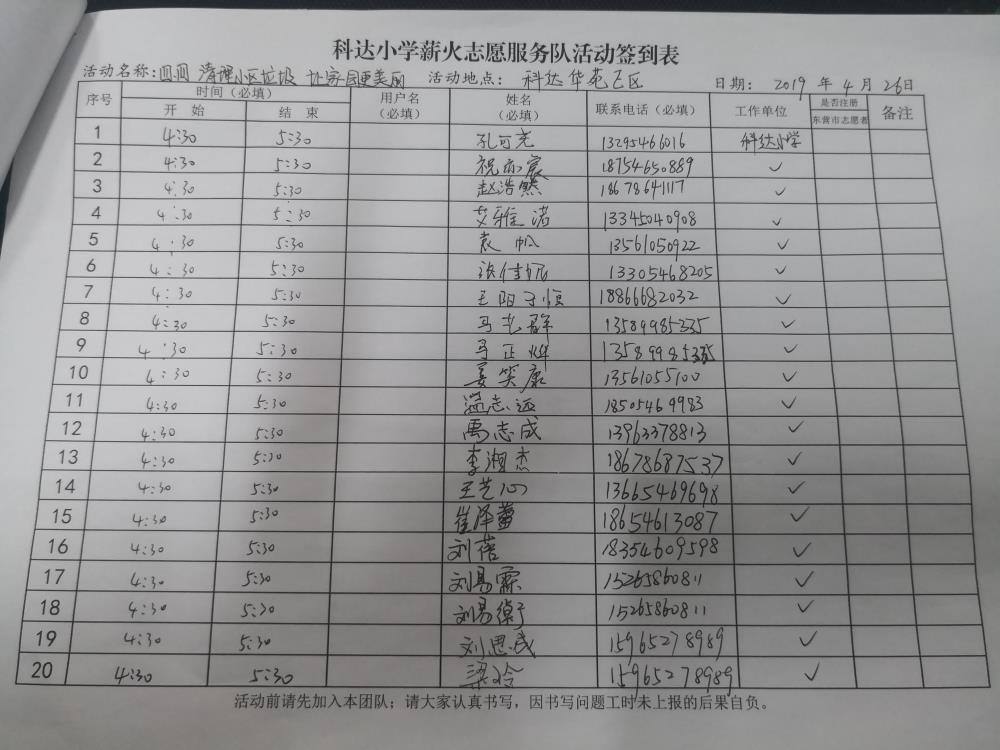 科达小学薪火志愿服务队活动签到表
活动名称: 清理小区垃圾 让家园更美丽 活动地点: 科达华苑 区 日期: 2019 年 4 月 26 日
序号 时间（必填） 用户名（必填） 姓名（必填） 联系电话（必填） 工作单位 是否注册东营市志愿者 备注
开 始 结 束
1 4:30 5:30 孔可 13295466016 科达小学
2 4:30 5:30 祝 宸 18754650889 ✓
3 4:30 5:30 赵浩然 18678641117 ✓
4 4:30 5:30 艾雅诺 13345040908 ✓
5 4:30 5:30 袁帆 13561050922 ✓
6 4:30 5:30 张佳妮 13305468205 ✓
7 4:30 5:30 王阳子恒 18866682032 ✓
8 4:30 5:30 马 群 13589985335 ✓
9 4:30 5:30 马正烨 13589985335 ✓
10 4:30 5:30 姜笑康 13561055100 ✓
11 4:30 5:30 温志远 18505469983 ✓
12 4:30 5:30 禹志成 13963378813 ✓
13 4:30 5:30 李湘杰 18678687537 ✓
14 4:30 5:30 王艺心 13665469698 ✓
15 4:30 5:30 崔泽蕾 18654613087 ✓
16 4:30 5:30 刘蓓 18354609598 ✓
17 4:30 5:30 刘易霖 15265860811 ✓
18 4:30 5:30 刘易衡 15265860811 ✓
19 4:30 5:30 刘思成 15965278989 ✓
20 4:30 5:30 梁玲 15965278989 ✓
活动前请先加入本团队；请大家认真书写，因书写问题工时未上报的后果自负。